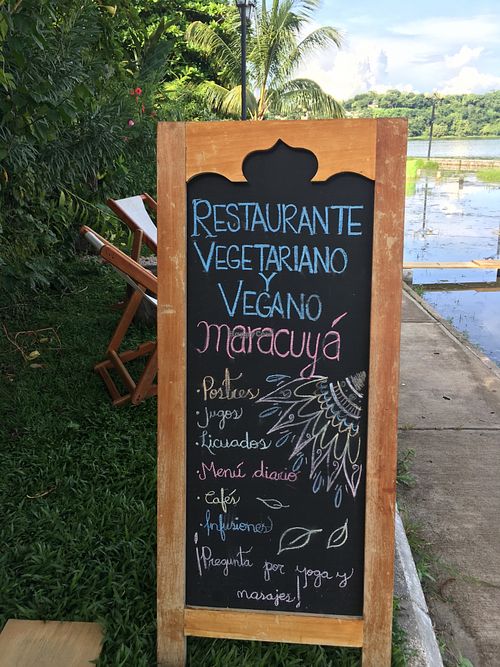 RESTAURANTE
VEGETARIANO
Y
VEGANO
Maracuyá
· Postres
· Jugos
· Licuados
· Menú diario
· Cafés
· Infusiones
¡Pregunta por yoga y
masajes!